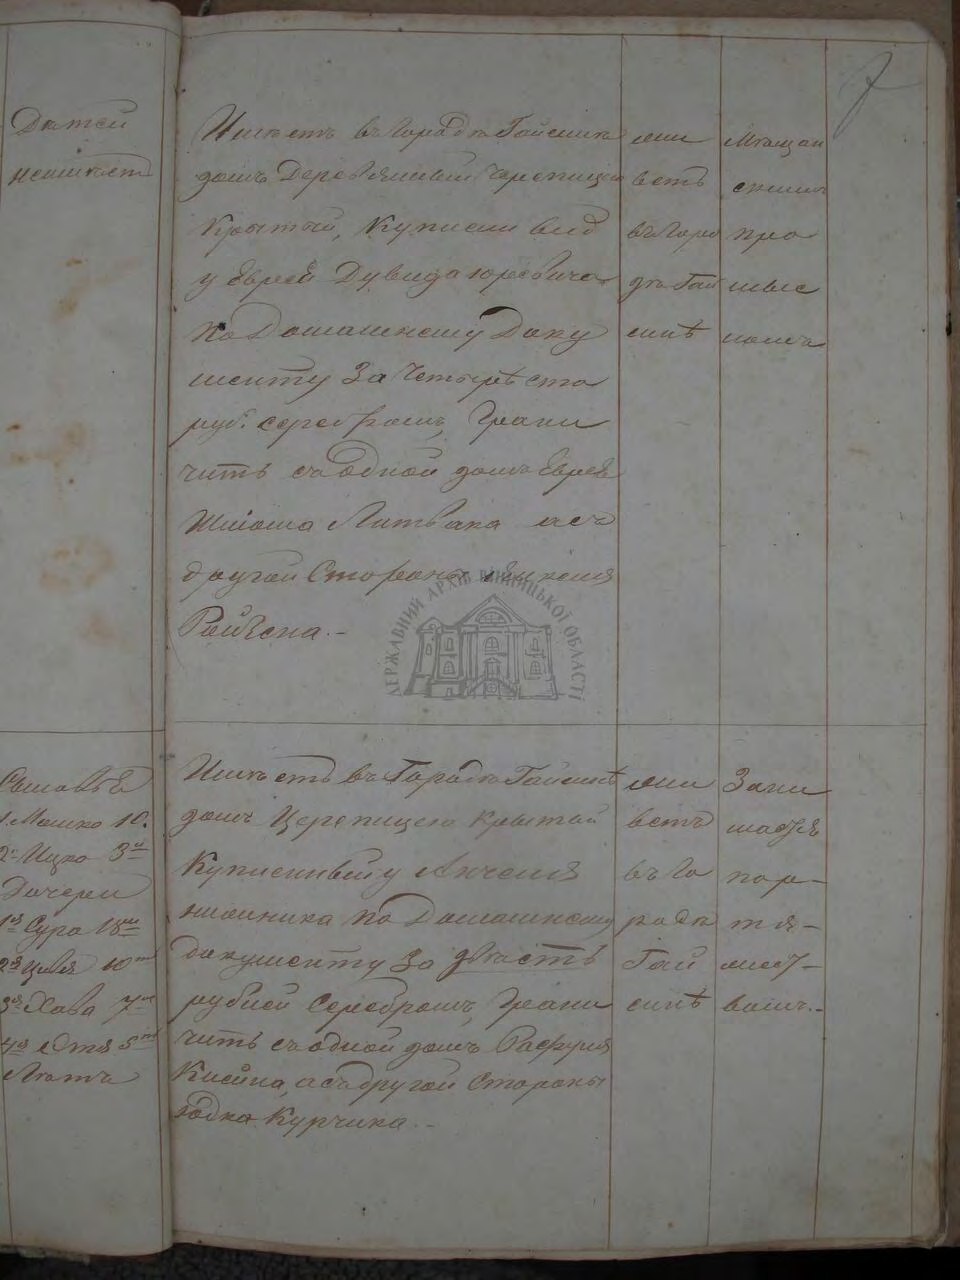 7
Детей
неимеет
Имеетъ въ городе Гайсине
домъ Деревянный черепицею
крытый, купленный
у Еврея Дувида Юревича
по Домашнему Доку
менту За Четыреста
руб. серебромъ, Грани
читъ съ одной домъ Еврея
Литвака а съ
другой Стороны
живетъ
въ горо
де Гай
сине
Мещан
скимъ
про
мыс
ломъ
ДЕРЖАВНИЙ АРХІВ ВІННИЦЬКОЇ ОБЛАСТІ
Сыновья
1. Мошко 10.
2й Ицко 3й
Дочери
1я Сура 15ти
2я Цивя 10ти
3я Хава 7ми
4я 5ти
Летъ
Имеетъ въ Городе Гайсине
домъ Черепицею крытый
купленный у Анчеля
по Домашнему
документу За двести
рублей Серебромъ, Грани
читъ съ одной домъ
а съ другой Стороны
Юдка Курчика.
живетъ
въ Го
роде
Гай
сине
Зани
мается
пор-
тня-
жест-
вомъ.